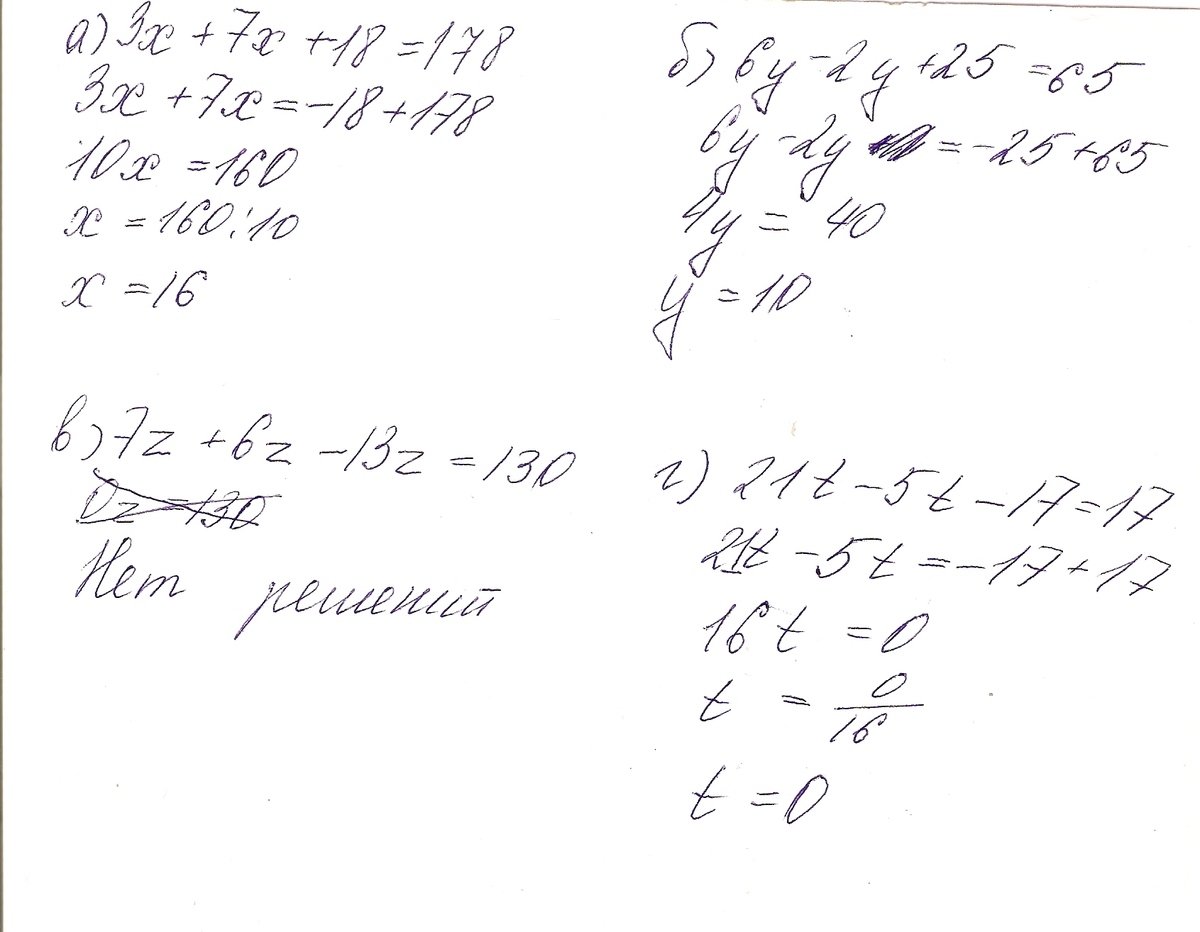 а) 3x + 7x + 18 = 178
3x + 7x = -18 + 178
10x = 160
x = 160 : 10
x = 16
б) 6y - 2y + 25 = 65
6y - 2y = -25 + 65
4y = 40
y = 10
в) 7z + 6z - 13z = 130
0z = 130
Нет решений
г) 21t - 5t - 17 = 17
21t - 5t = -17 + 17
16t = 0
t = 0/16
t = 0